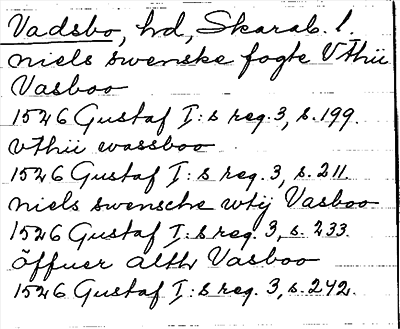 Vadsbo, hd, Skarab. l.
niels swenske fogte Vthii
Vasboo
1526 Gustaf I:s reg. 3, s. 199.
vthii wassboo
1526 Gustaf I:s reg. 3, s. 211.
niels swensche wtij Vasboo
1526 Gustaf I:s reg. 3, s. 233.
öffuer alth Vasboo
1526 Gustaf I:s reg. 3, s. 242.